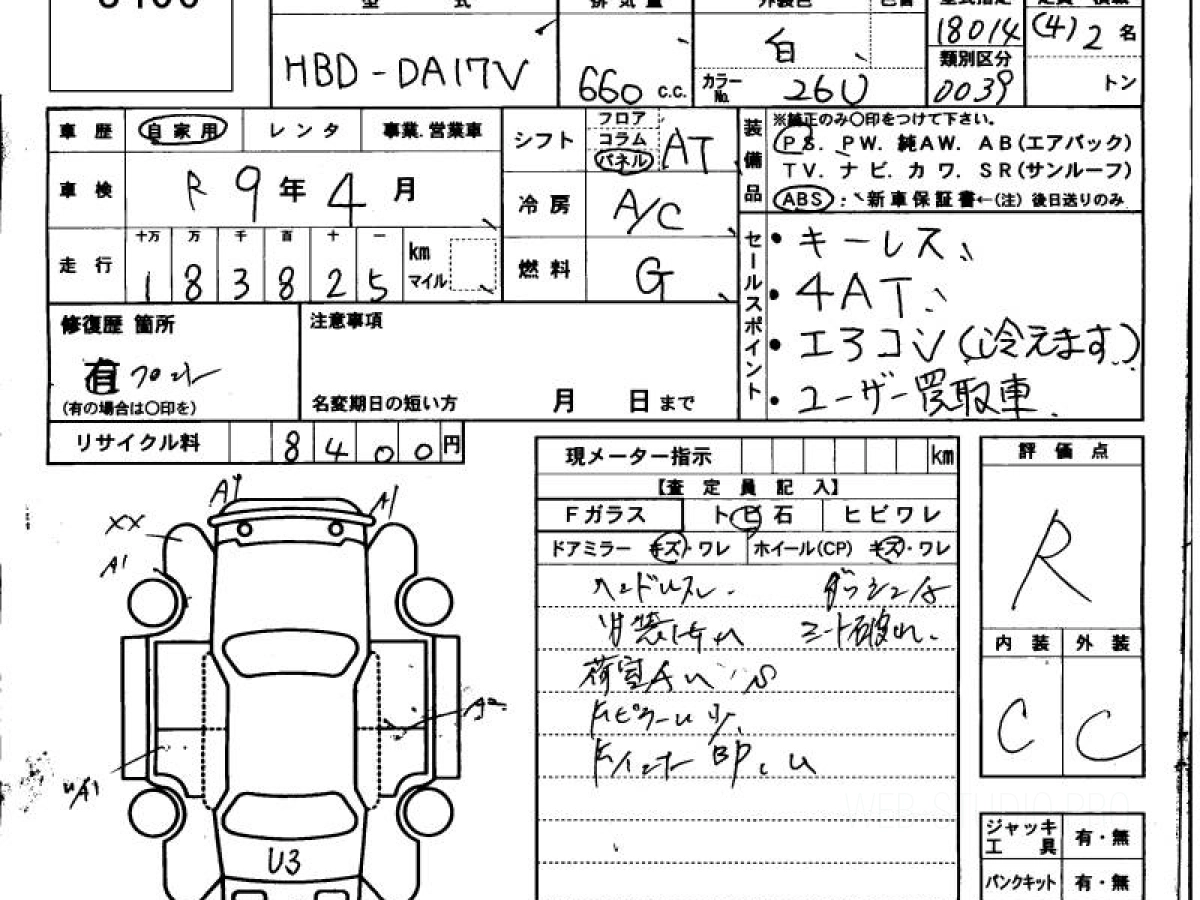 型 式 排気量 外装色 色替 型式指定 定員 積載
HBD-DA17V 660 c.c. 白 18014 (4) 2 名
カラーNo. 26U 類別区分 0039 トン
車歴 自家用 レンタ 事業.営業車
シフト フロア コラム パネル AT
装備品 ※純正のみ〇印をつけて下さい。
PS. PW. 純AW. AB(エアバック)
TV. ナビ. カワ. SR(サンルーフ)
ABS : 新車保証書←(注) 後日送りのみ
車検 R 9 年 4 月
冷房 A/C
走行 十万 万 千 百 十 一
1 8 3 8 2 5 km マイル
燃料 G
セールスポイント
・キーレス
・4AT
・エアコン(冷えます)
・ユーザー買取車.
修復歴 箇所
有 フロント
(有の場合は〇印を)
注意事項
名変期日の短い方 月 日 まで
リサイクル料 8400円
現メーター指示 km
【査定員記入】
Fガラス トビ石 ヒビワレ
ドアミラー キズ・ワレ ホイール(CP) キズ・ワレ
ダッシュ
シート破れ.
荷室
評価点
R
内装 外装
C C
A1
A1
XX
A1
A2
A1
U3
ジャッキ 工具 有・無
パンクキット 有・無
WEB-STUDIO.PRO